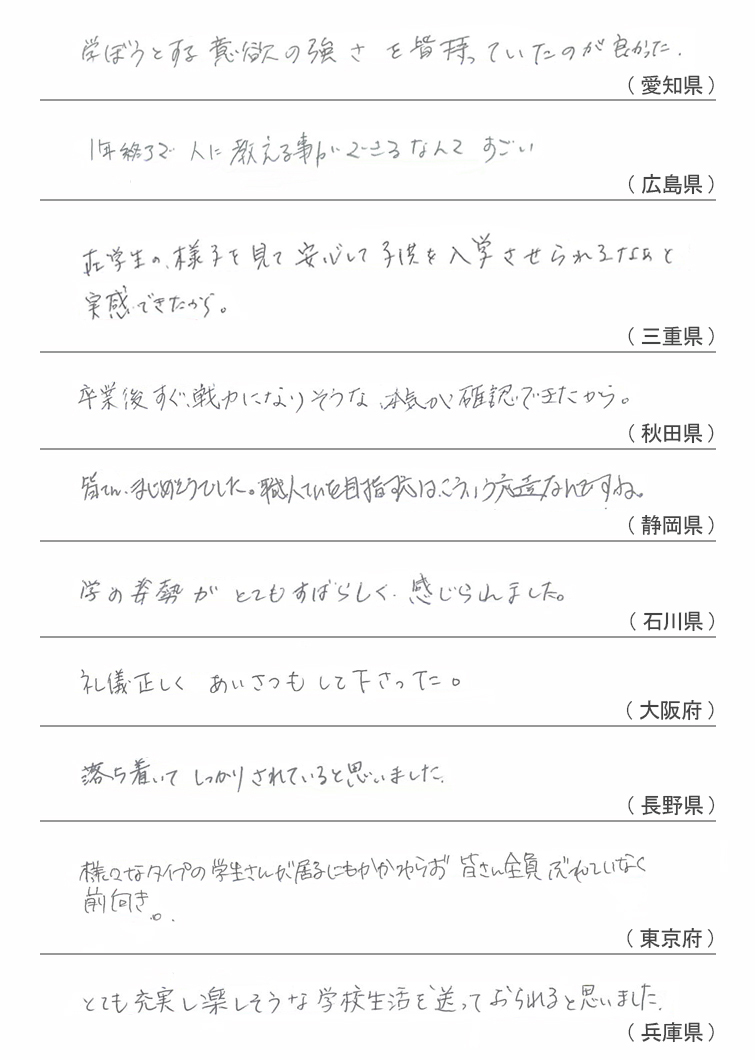 学ぼうとする意欲の強さを皆持っていたのが良かった.
（愛知県）
1年終了で人に教える事ができるなんてすごい
（広島県）
在学生の様子を見て安心して子供を入学させられるなぁと
実感できたから。
（三重県）
卒業後すぐ戦力になりそうな本気が確認できたから。
（秋田県）
皆さん、まじめそうでした。職人さんを目指す方は、こういう方達なんですね。
（静岡県）
学の姿勢がとてもすばらしく感じられました。
（石川県）
礼儀正しく あいさつも して下さった。
（大阪府）
落ち着いて しっかりされていると思いました.
（長野県）
様々なタイプの学生さんが居るにもかかわらず 皆さん全員 ズレていなく
前向き。
（東京府）
とても充実し楽しそうな学校生活を送っておられると思いました.
（兵庫県）